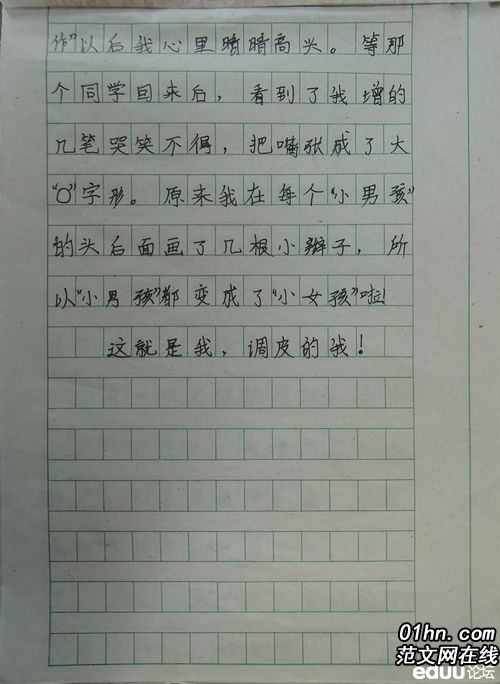 作”以后我心里暗暗高兴。等那
个同学回来后，看到了我增的
几笔哭笑不得，把嘴张成了大
“O”字形。原来我在每个“小男孩”
的头后面画了几根小辫子，所
以“小男孩”都变成了“小女孩”啦！
这就是我，调皮的我！
01hn.com
范文网在线
eduu论坛